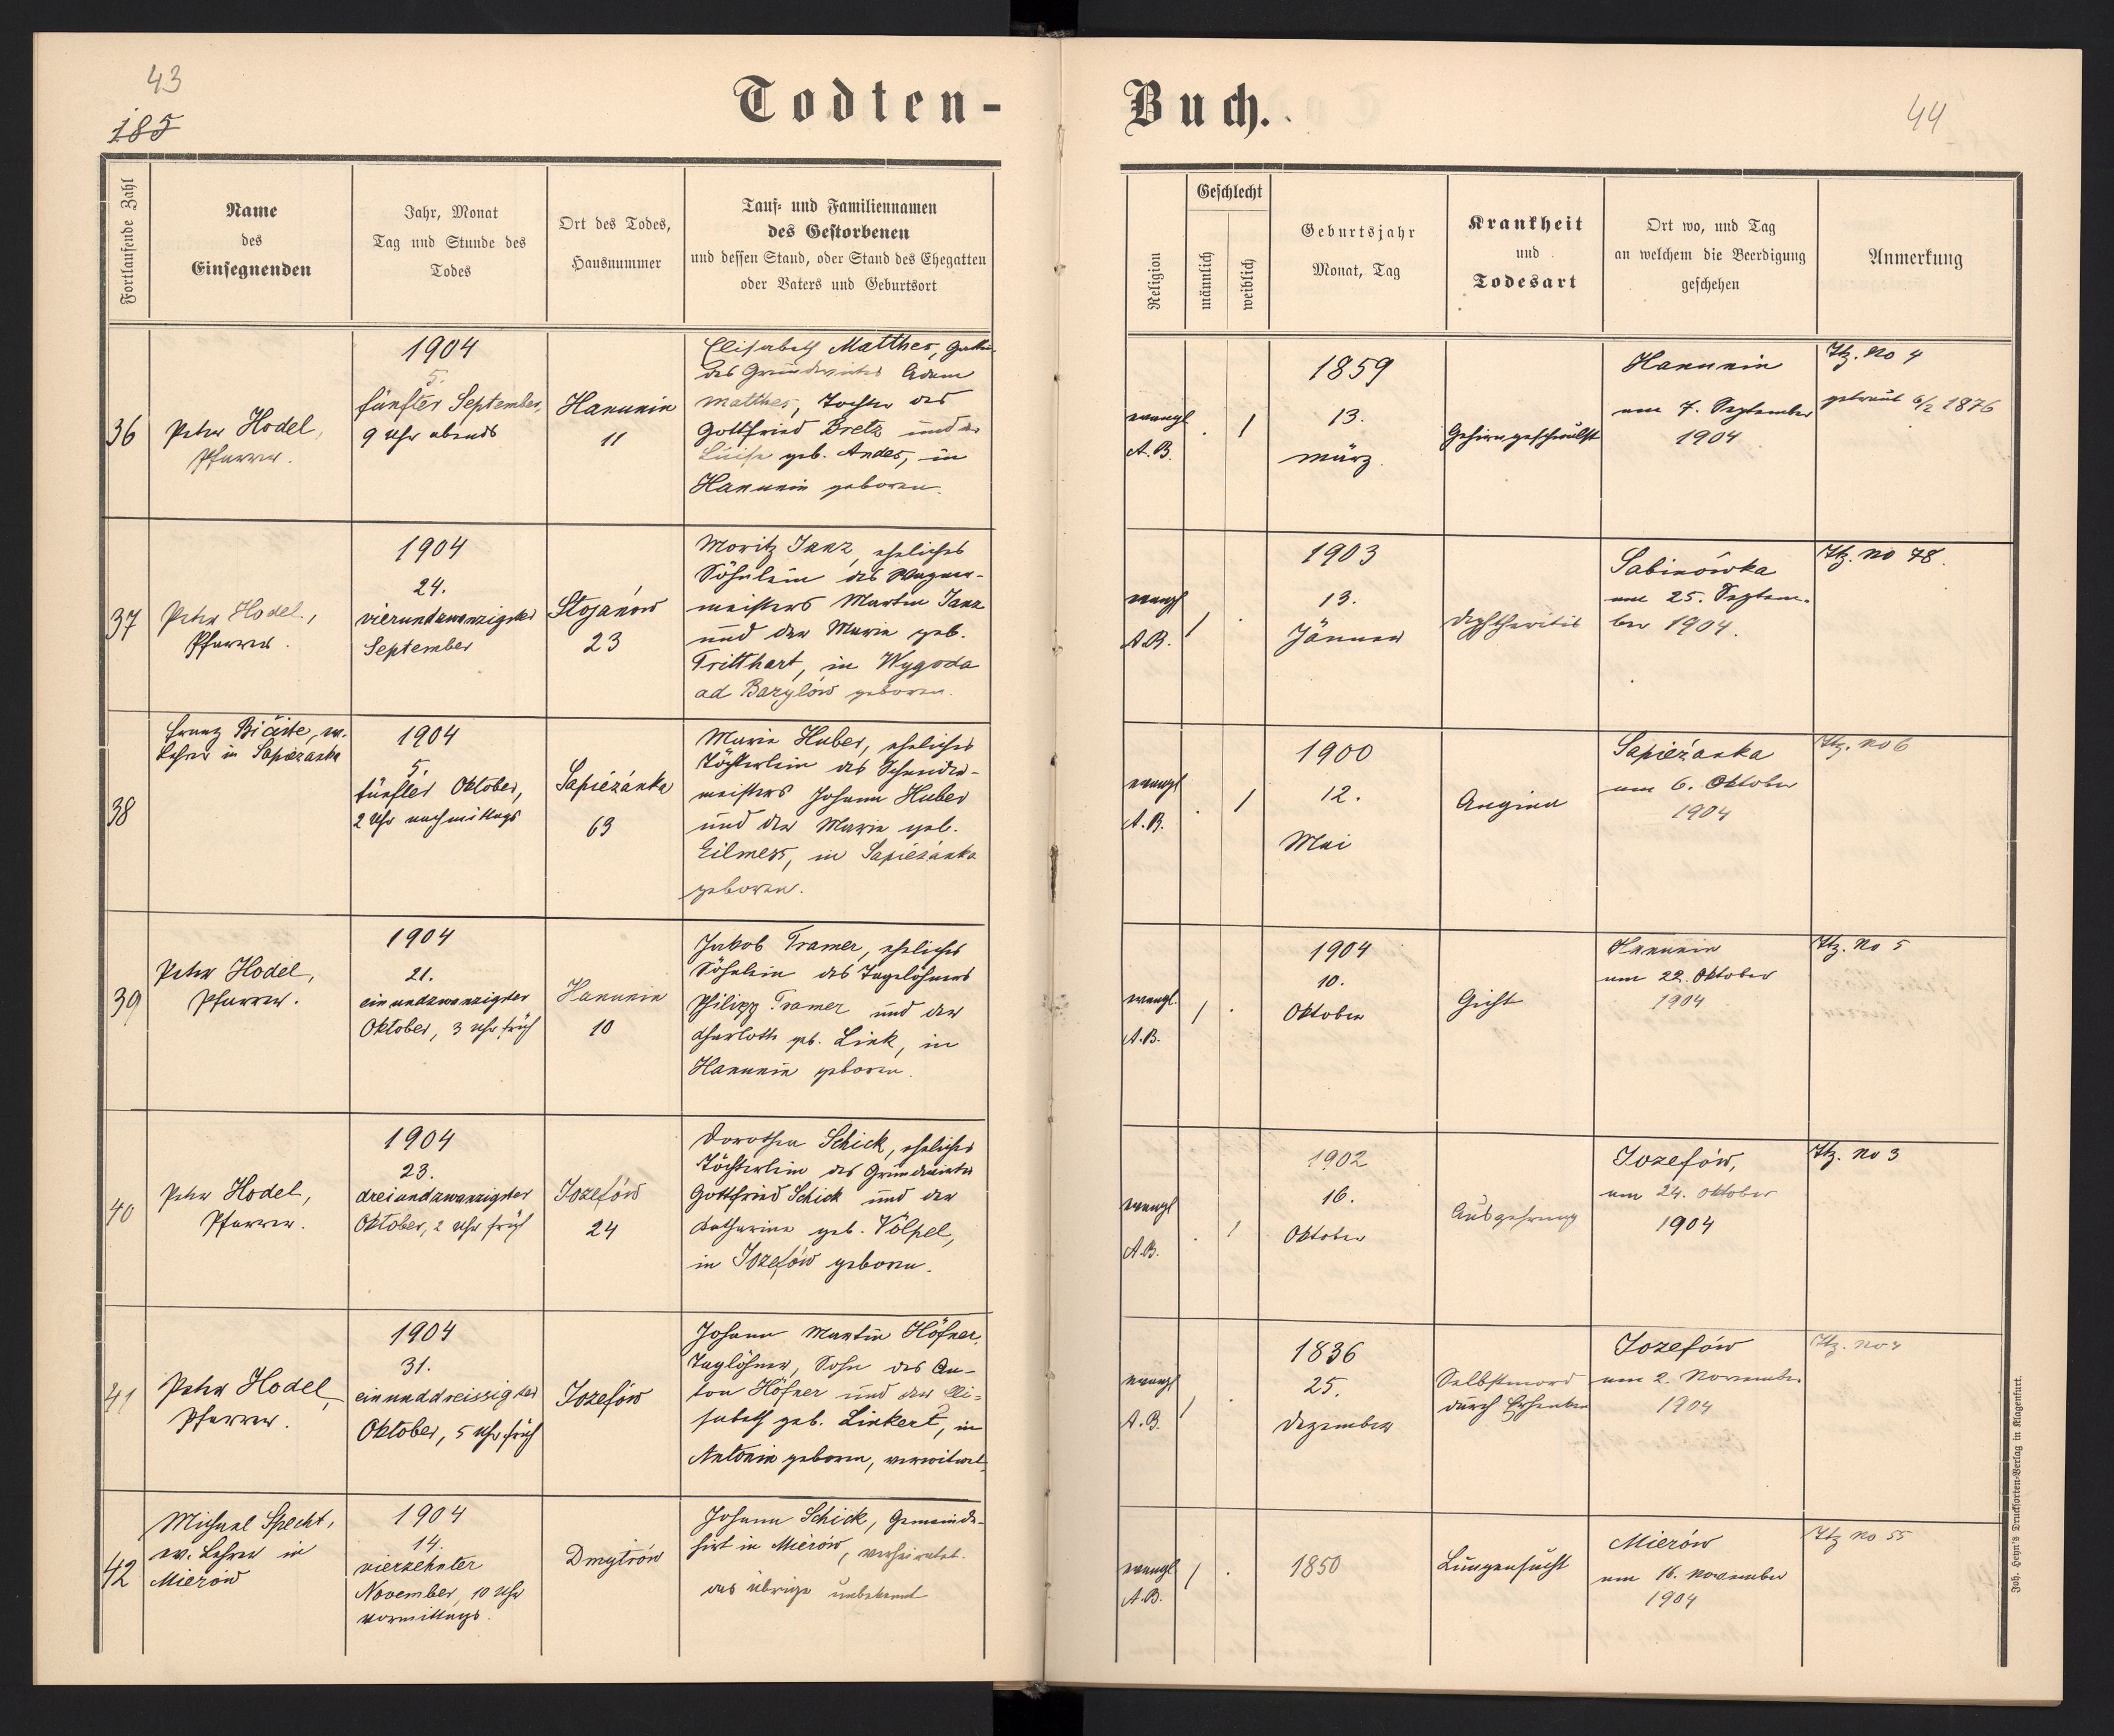 43
185
Todten-
Fortlaufende Zahl
Name
des
Einsegnenden
Jahr, Monat
Tag und Stunde des
Todes
Ort des Todes,
Hausnummer
Tauf- und Familiennamen
des Gestorbenen
und dessen Stand, oder Stand des Ehegatten
oder Vaters und Geburtsort
36
Peter Hodel,
Pfarrer.
1904
5.
fünfter September,
9 Uhr abends
Hanunin
11
Elisabeth Matthes, Gattin
des Grundwirtes Adam
Matthes, Tochter des
Gottfried Bretz und der
Luise geb. Andes, in
Hanunin geboren.
37
Peter Hodel,
Pfarrer.
1904
24.
vierundzwanzigster
September
Stojanów
23
Moritz Janz, eheliches
Söhnlein des Wagner-
meisters Martin Janz
und der Marie geb.
Tritthart, in Wygoda
ad Barylów geboren.
38
Franz Bičiste, ev.
Lehrer in Sapiezanka
1904
5.
fünfter Oktober,
2 Uhr nachmittags
Sapiéźanka
63
Marie Huber, eheliches
Töchterlein des Schneider-
meisters Johann Huber
und der Marie geb.
Eilmess, in Sapiéźanka
geboren.
39
Peter Hodel,
Pfarrer.
1904
21.
einundzwanzigster
Oktober, 3 Uhr früh
Hanunin
10
Jakob Tramer, eheliches
Söhnlein des Tagelöhners
Philipp Tramer und der
Charlotte geb. Link, in
Hanunin geboren.
40
Peter Hodel,
Pfarrer.
1904
23.
dreiundzwanzigster
Oktober, 2 Uhr früh
Jozefów
24
Dorothea Schick, eheliches
Töchterlein des Grundwirtes
Gottfried Schick und der
Katharina geb. Völpel,
in Jozefów geboren.
41
Peter Hodel,
Pfarrer.
1904
31.
einunddreissigster
Oktober, 5 Uhr früh
Jozefów
Johann Martin Höfner,
Taglöhner, Sohn des An-
ton Höfner und der Eli-
sabeth geb. Linkert, in
Antonin geboren, verwitwet.
42
Michael Specht,
ev. Lehrer in
Mierów
1904
14.
vierzehnter
November, 10 Uhr
vormittags.
Dmytrów
Johann Schick, Gemeinde-
hirt in Mierów, verheiratet.
das übrige unbekannt
Buch.
44
Religion
Geschlecht
männlich
weiblich
Geburtsjahr
Monat, Tag
Krankheit
und
Todesart
Ort wo, und Tag
an welchem die Beerdigung
geschehen
Anmerkung
evangl
A.B.
. 1
1859
13.
März.
Gehirngeschwulst
Hanunin
am 7. September
1904
Itz. No 4
getraut 6/2 1876
evangl
A.B.
1 .
1903
13.
Jänner
Dyphtheritis
Sabinówka
am 25. Septem-
ber 1904.
Itz. No 78.
evangl
A.B.
. 1
1900
12.
Mai
Angina
Sapiéźanka
am 6. Oktober
1904
Itz. No 6
evangl.
A.B.
1 .
1904
10.
Oktober
Gicht
Hanunin
am 22. Oktober
1904
Itz. No 5
evangl
A.B.
. 1
1902
16.
Oktober
Auszehrung
Jozefów,
am 24. Oktober
1904
Itz. No 3
evangl
A.B.
1 .
1836
25.
Dezember
Selbstmord
durch Erhenken
Jozefów
am 2. November
1904
Itz. No
evangl
A.B.
1 .
1850
Lungensucht
Mierów
am 16. November
1904
Itz No 55
Joh. Heyn's Drucksorten-Verlag in Klagenfurt.